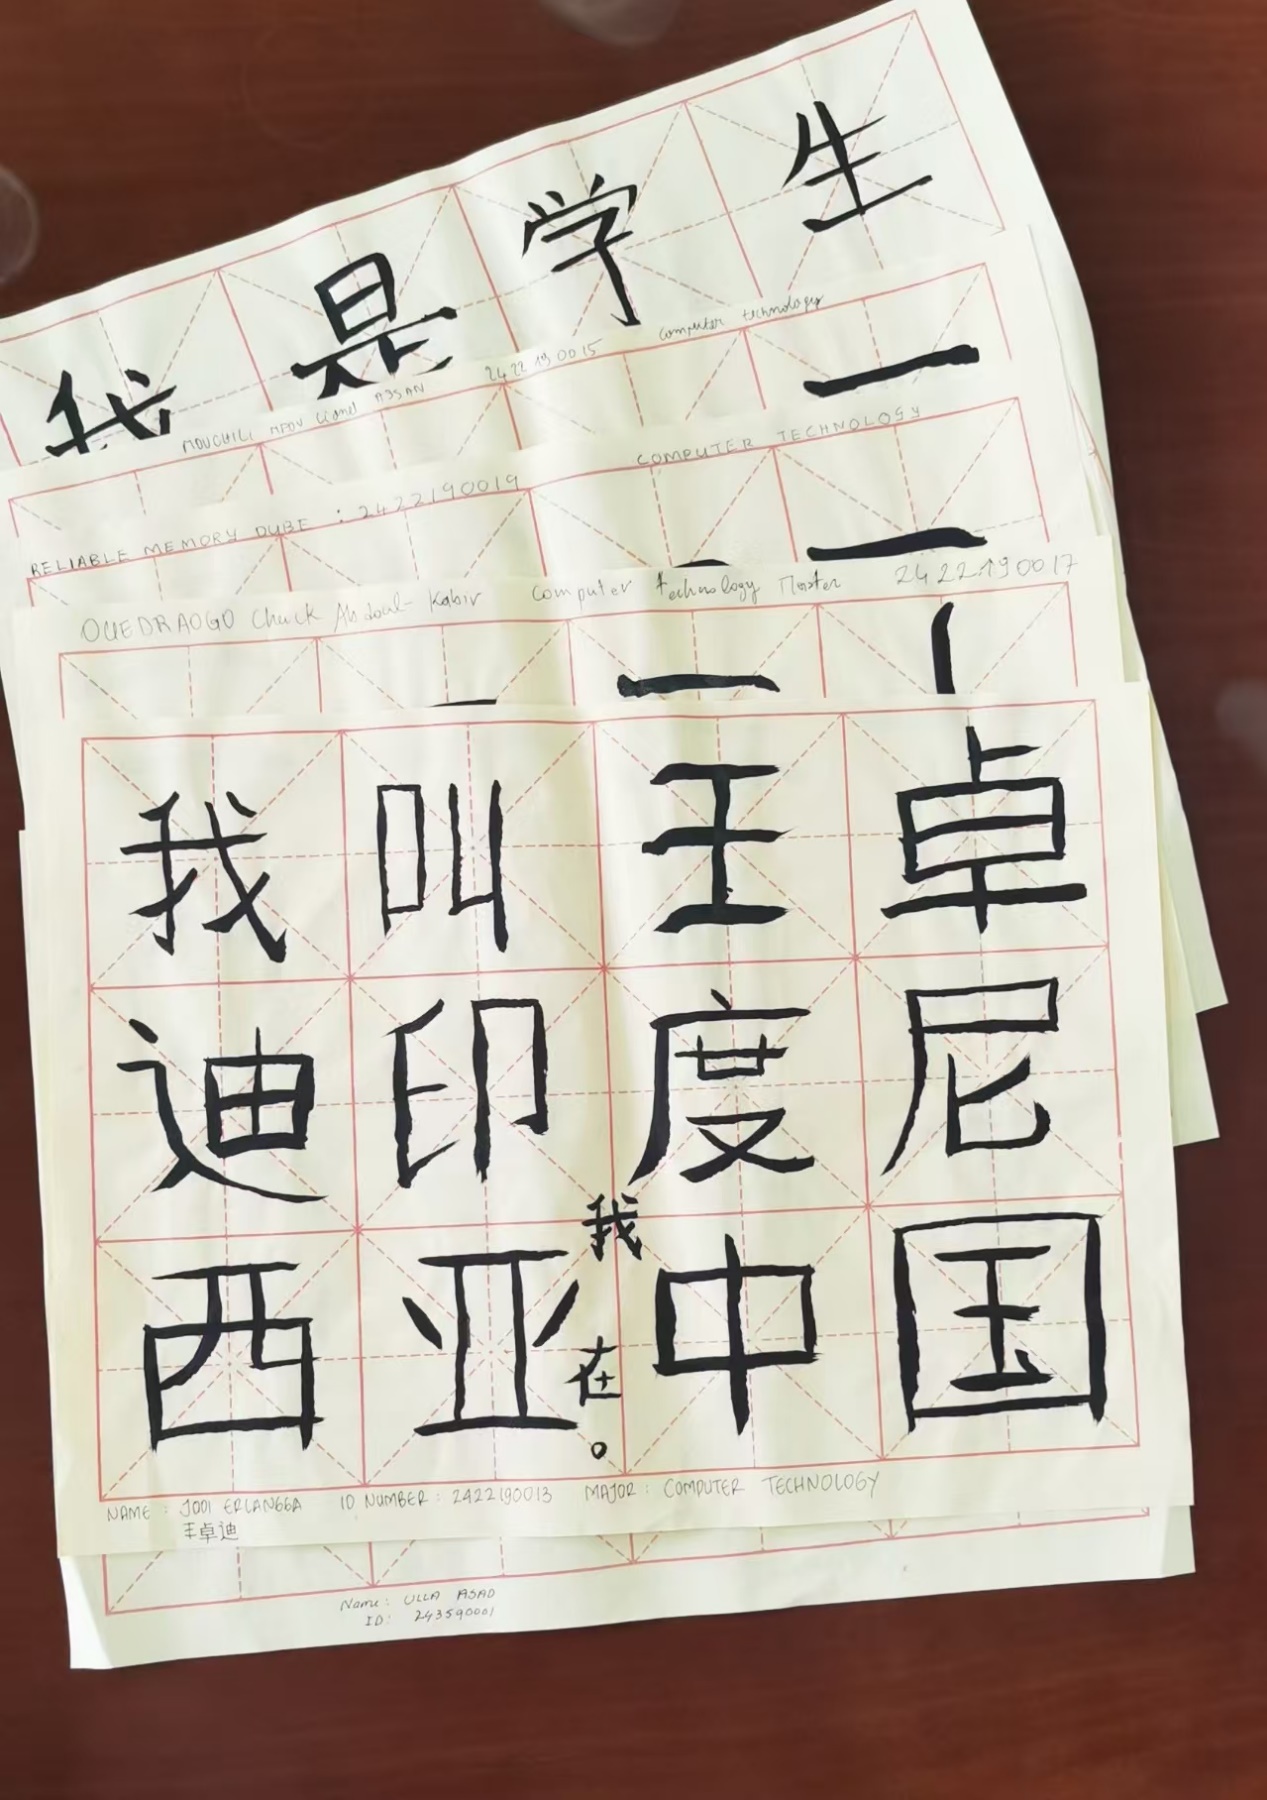 我是学生
MOUCHILI MFOU Lionel ASSAN 2422190015 computer technology
一
RELIABLE MEMORY DUBE : 2422190019 COMPUTER TECHNOLOGY
OUEDRAOGO Cheick Abdoul-Kabir Computer technology Master 2422190017
我叫王卓
迪印度尼
西亚。我在中国
NAME : JODI ERLANGGA ID NUMBER : 2422190013 MAJOR : COMPUTER TECHNOLOGY
王卓迪
Name: ULLA ASAD
ID: 243590001